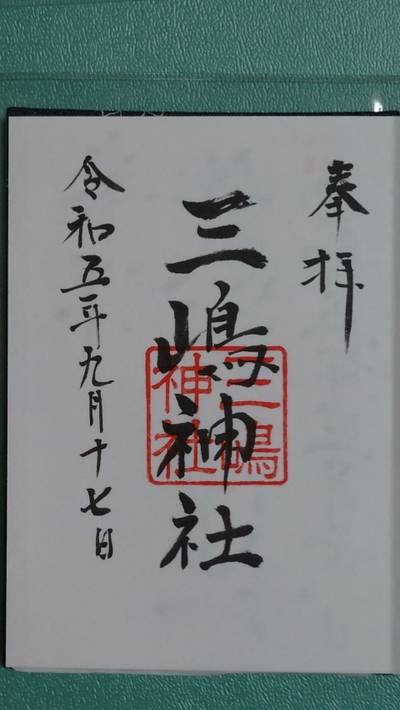 奉拝
三嶋神社
三嶋
神社
令和五年九月十七日